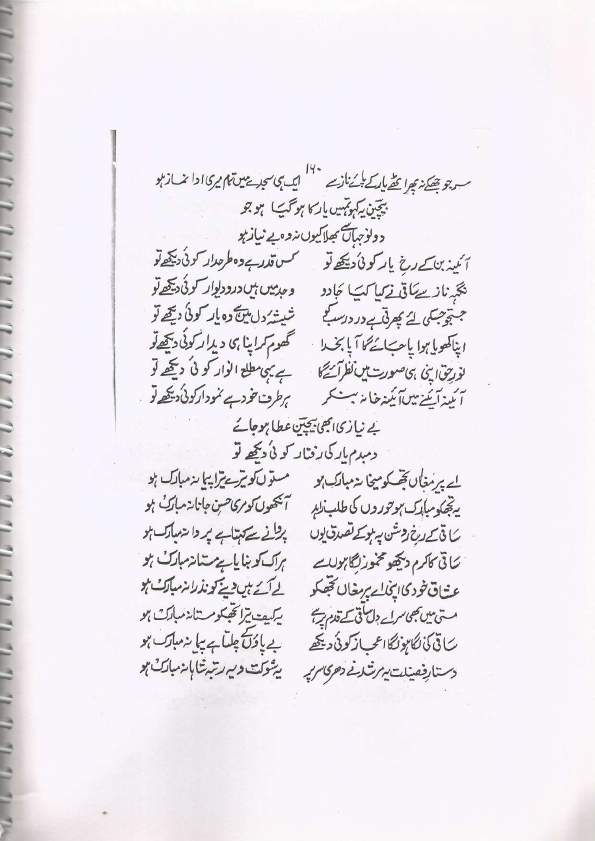 ۱۶۰
سر جو جھکے نہ پھر اٹھے یار کے پائے ناز سے ایک ہی سجدے میں تمام میری ادا نماز ہو
بیچین یہ کہو تمہیں یار کا ہو گیا ہو جو
دونوں جہاں سے بھلا کیوں نہ وہ بے نیاز ہو
آئینہ بن کے رخِ یار کوئی دیکھے تو کس قدر ہے وہ طرحدار کوئی دیکھے تو
نگہہ ناز سے ساقی نے کیا کیا جادو وجد میں ہیں در و دیوار کوئی دیکھے تو
جستجو جسکی لئے پھرتی ہے در در سب کو شیشۂ دل میں ہے وہ یار کوئی دیکھے تو
اپنا کھویا ہوا پا جائے گا آپا بخدا گھوم کر اپنا ہی دیدار کوئی دیکھے تو
نورِ حق اپنی ہی صورت میں نظر آئے گا ہے یہی مطلع انوار کوئی دیکھے تو
آئینہ آئینے میں آئینہ خانہ بنکر ہر طرف خود ہے نمودار کوئی دیکھے تو
بے نیازی ابھی بیچین عطا ہو جائے
دمبدم یار کی رفتار کوئی دیکھے تو
اے پیر مغاں تجھکو میخانہ مبارک ہو مستوں کو ترے تیرا پیمانہ مبارک ہو
یہ تجھکو مبارک ہو حوروں کی طلب زاہد آنکھوں کو مری حسن جانانہ مبارک ہو
ساقی کے رخِ روشن پہ ہو کے تصدق یوں پروانے سے کہتا ہے پروانہ مبارک ہو
ساقی کا کرم دیکھو مخمور نگاہوں سے ہر اک کو بنایا ہے مستانہ مبارک ہو
عشاق خودی اپنی اے پیر مغاں تجھکو لے آئے ہیں دینے کو نذرانہ مبارک ہو
مستی میں بھی سر اے دل ساقی کے قدم پر ہے یہ کیف ترا تجھکو مستانہ مبارک ہو
ساقی کی نگاہوں کا اعجاز کوئی دیکھے بے پاؤں کے چلتا ہے پیمانہ مبارک ہو
دستارِ فضیلت یہ مرشد نے دھری سر پر یہ شوکت و یہ رتبہ شاہانہ مبارک ہو